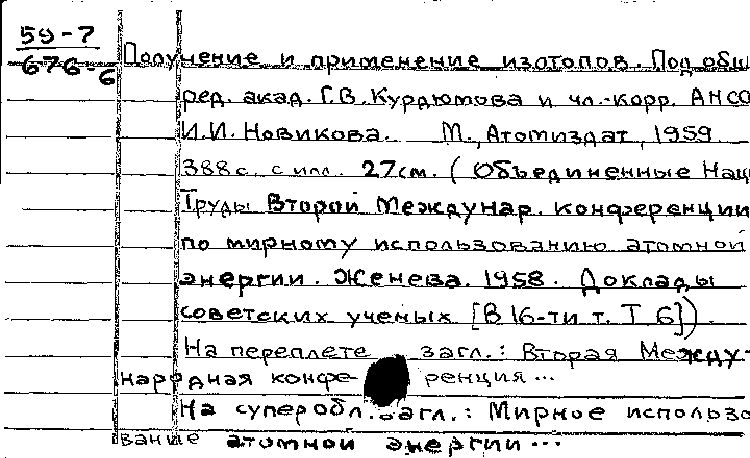 59-7
676-6
Получение и применение изотопов. Под общ
ред. акад. Г.В. Курдюмова и чл.-корр. АНСС
И.И. Новикова. М., Атомиздат, 1959
388 с. с илл. 27см. (Объединенные Нац
Труды Второй Междунар. конференции
по мирному использованию атомной
энергии. Женева. 1958. Доклады
советских ученых [В 16-ти т. Т 6]).
На переплете загл.: Вторая Между-
народная конфе- ренция...
На суперобл. загл.: Мирное использо
вание атомной энергии...